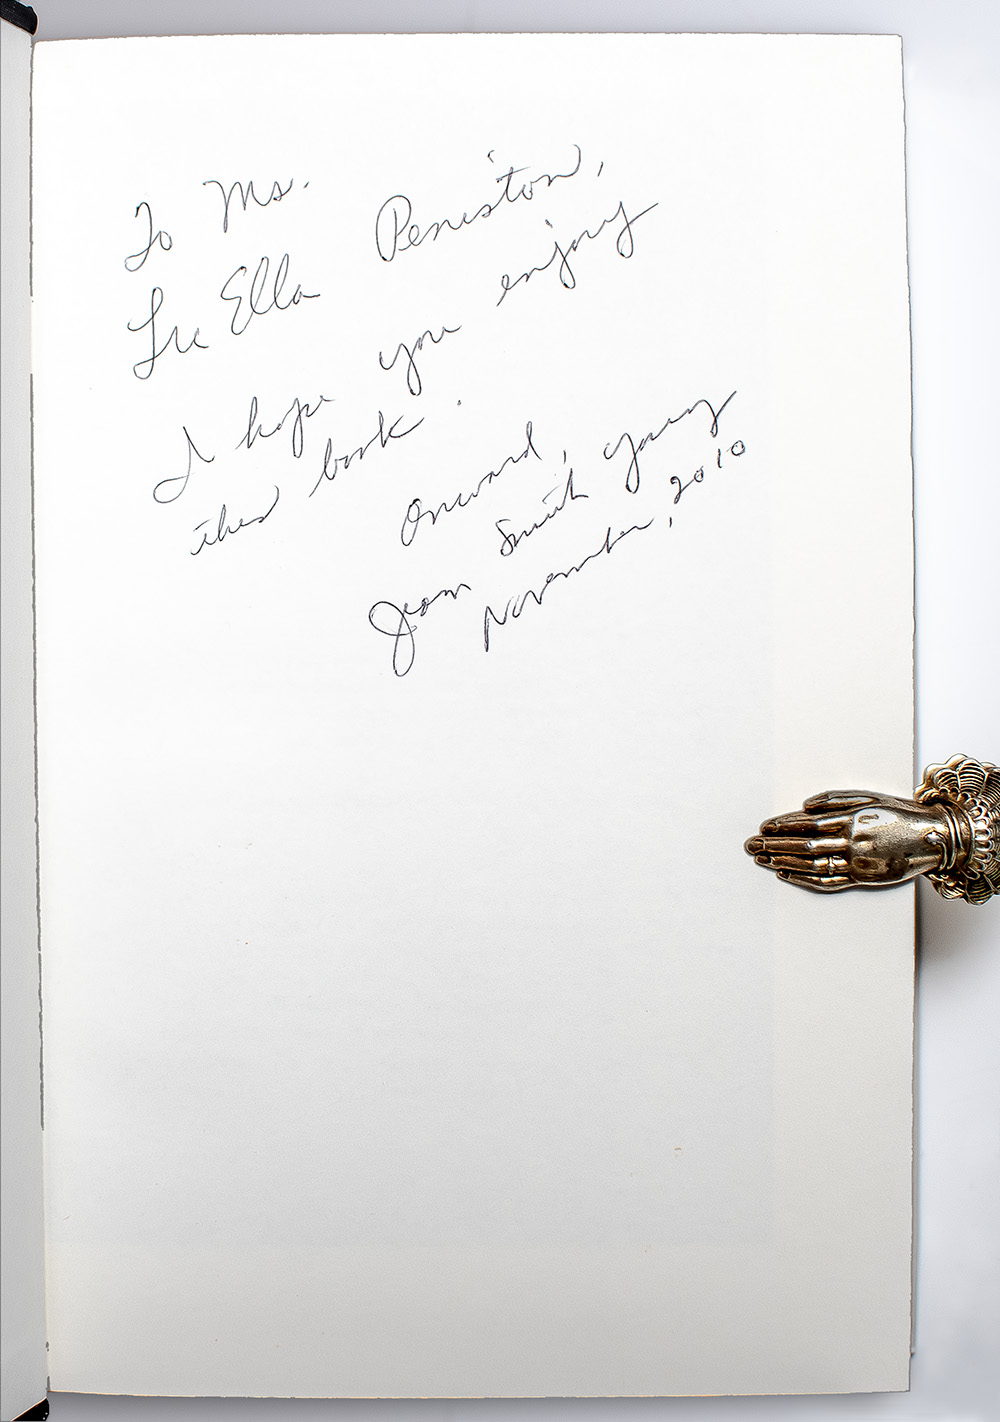 To Ms.
Lu Ella Peniston,
I hope you enjoy
this book.
Onward,
Jean Smith Young
November, 2010